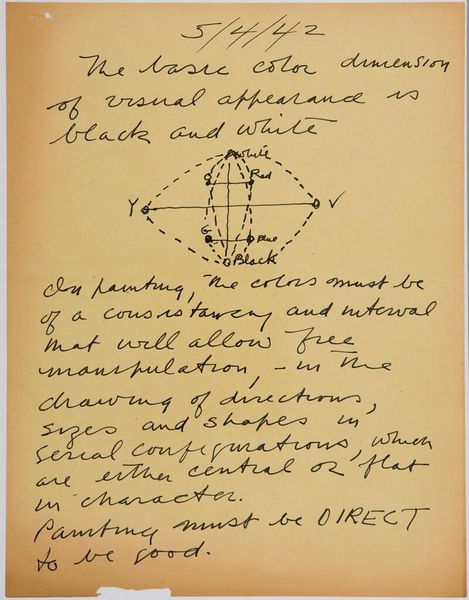 5/4/42
The basic color dimension
of visual appearance is
black and white
White
O Red
Y V
G Blue
Black
In painting, the colors must be
of a consistancy and interval
that will allow free
manipulation, – in the
drawing of directions,
sizes and shapes in
serial configurations, which
are either central or flat
in character.
Painting must be DIRECT
to be good.